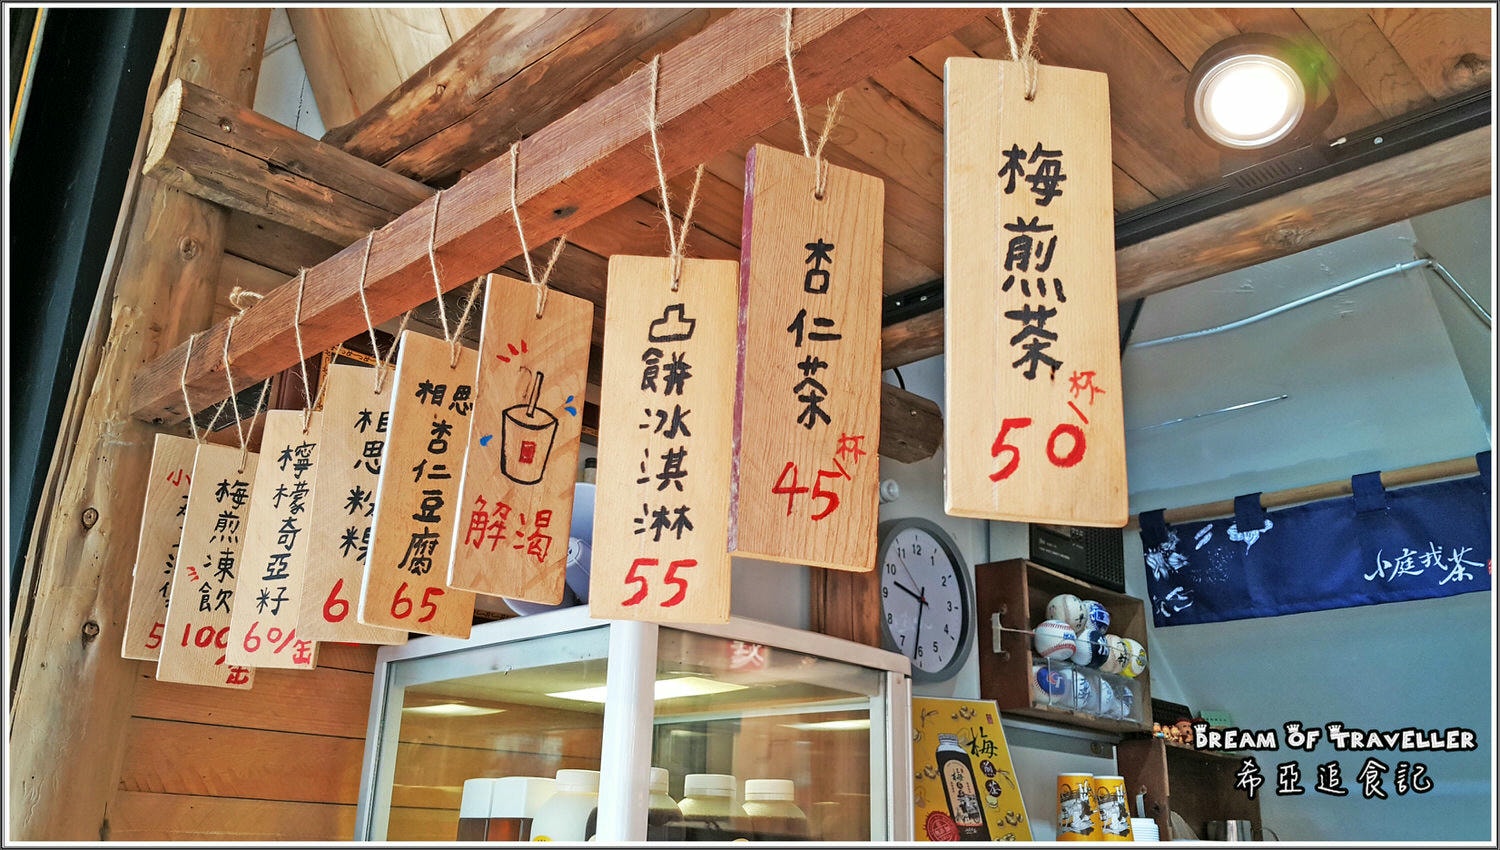 梅煎茶
50/杯
杏仁茶
45/杯
凸餅冰淇淋
55
解渴
相思杏仁豆腐
65
相思粉粿
6
檸檬奇亞籽
60/缶
梅煎凍飲
100/缶
小
5
小庭找茶
梅煎茶
12
11
10
9
8
7
6
5
4
3
2
1
DREAM OF TRAVELLER
希亞追食記